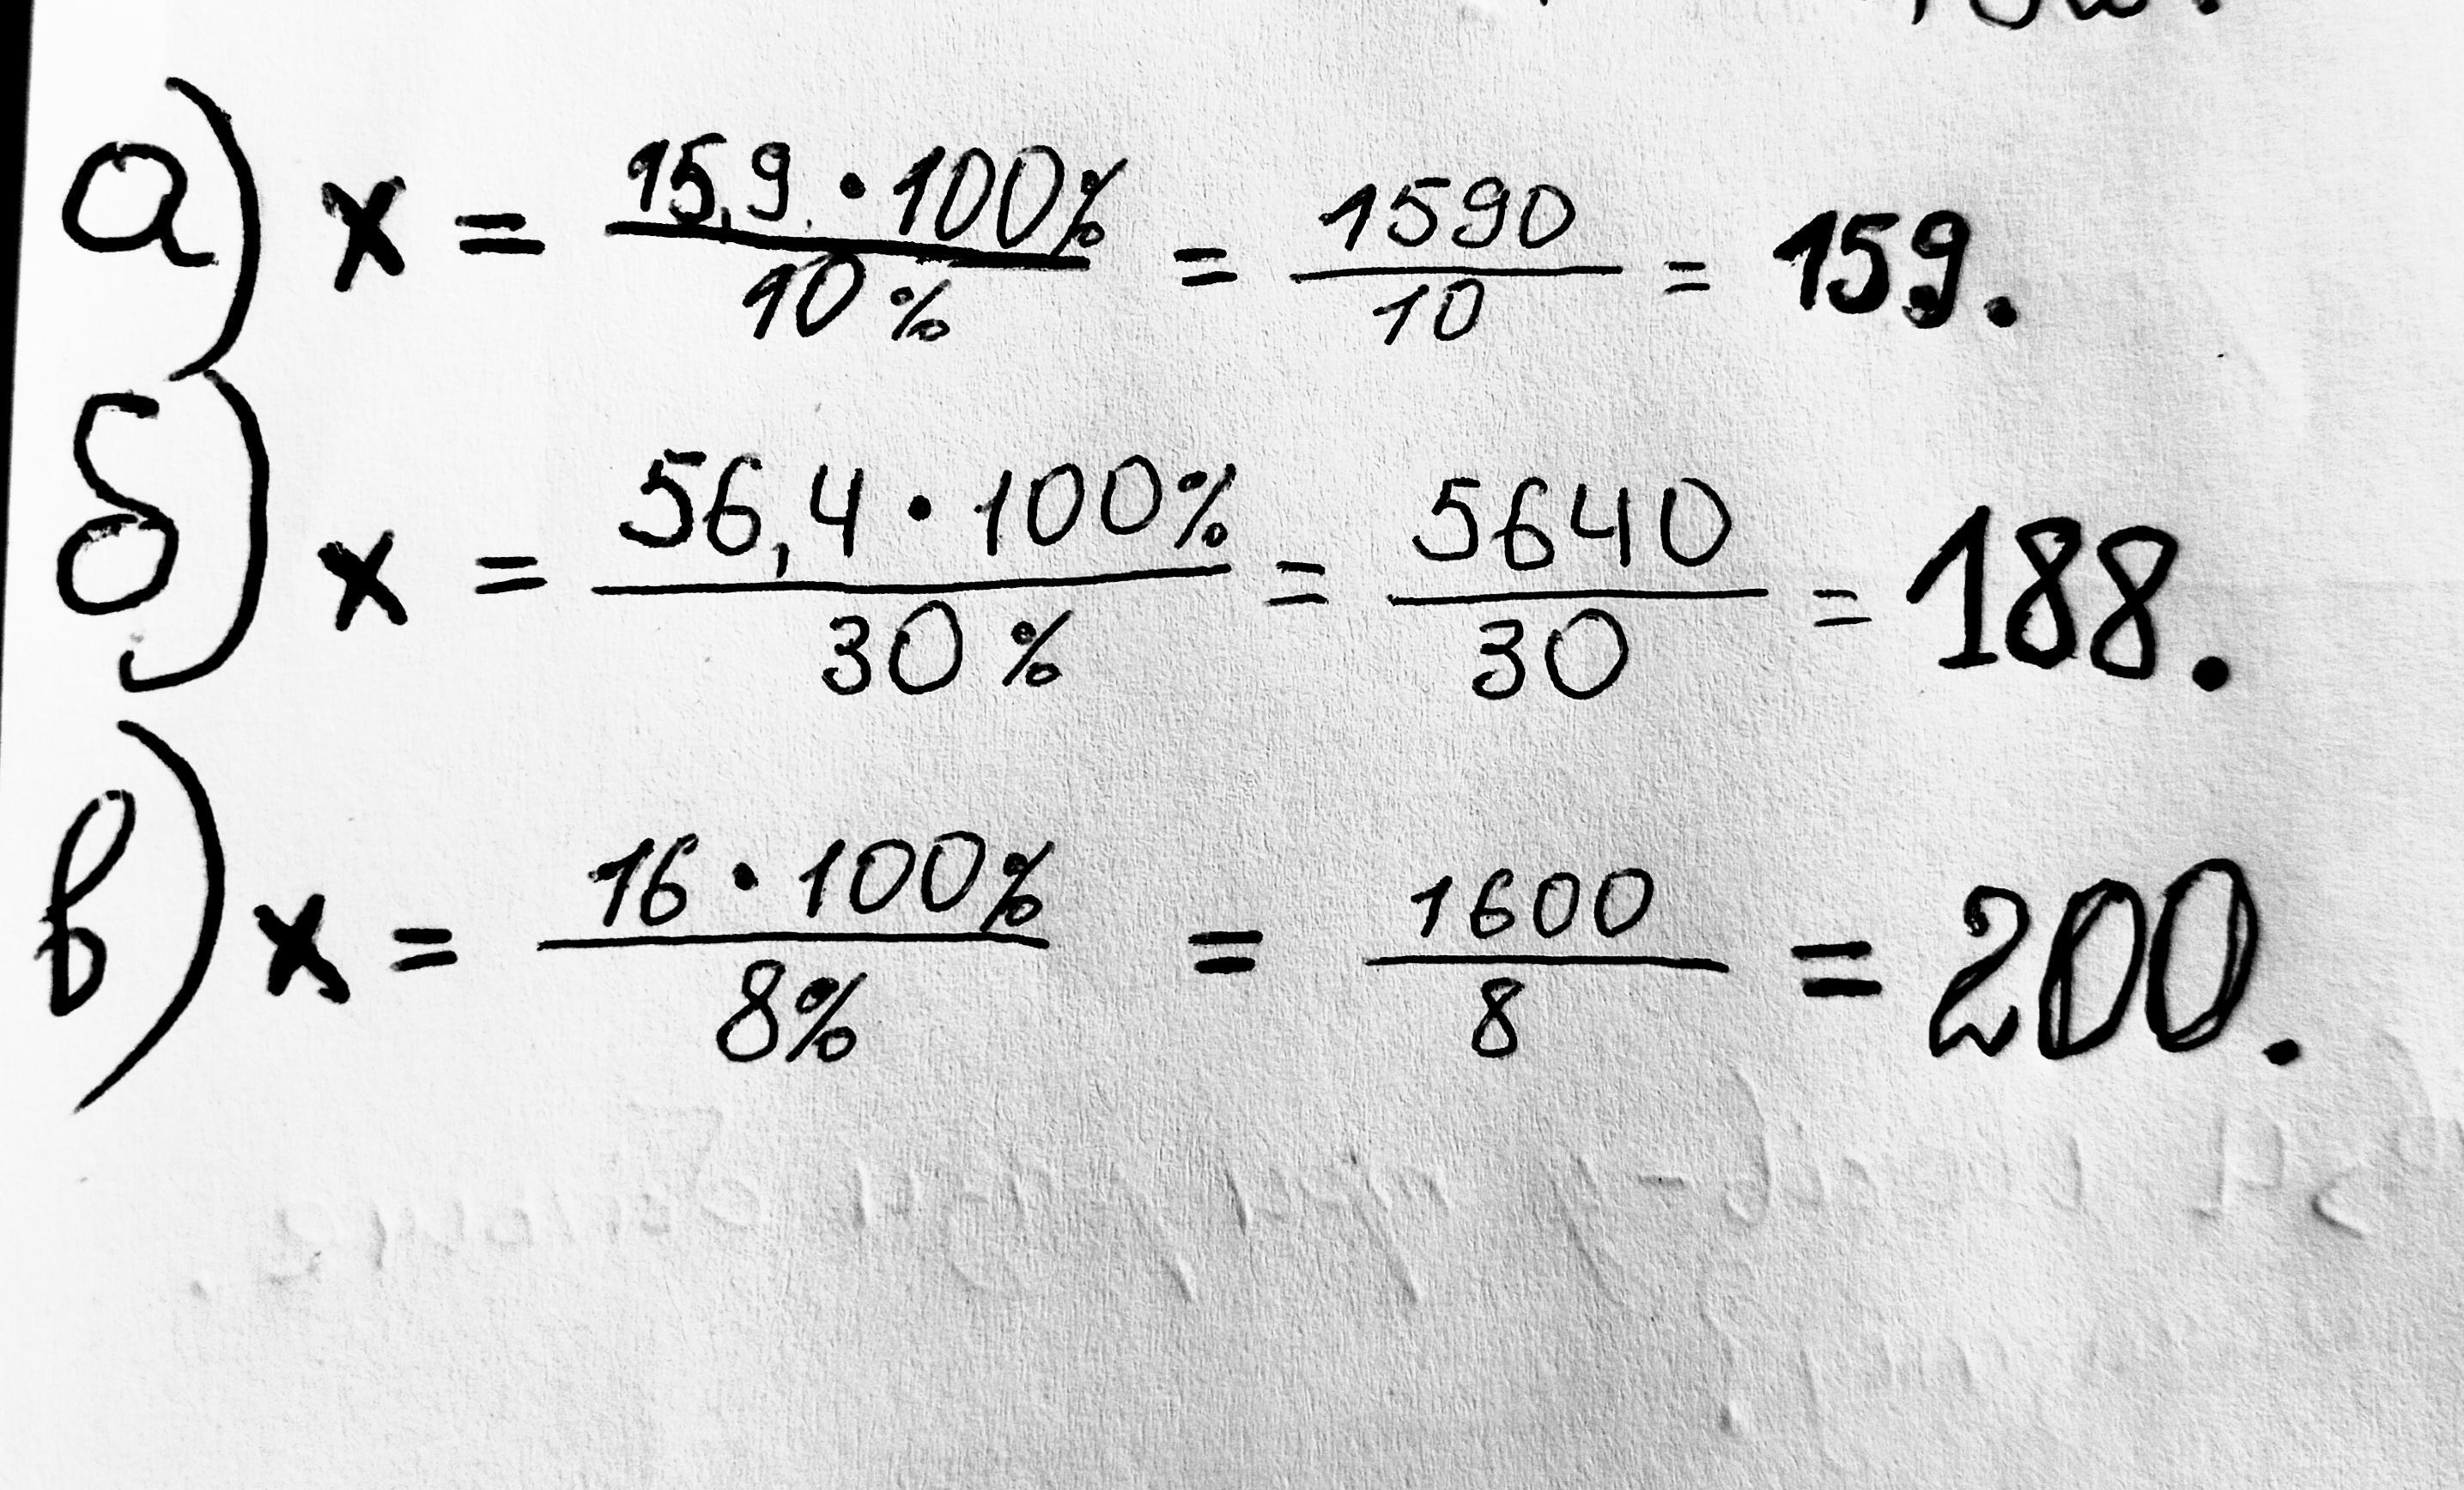 а) x = 15,9 · 100% / 10% = 1590 / 10 = 159.
б) x = 56,4 · 100% / 30% = 5640 / 30 = 188.
в) x = 16 · 100% / 8% = 1600 / 8 = 200.